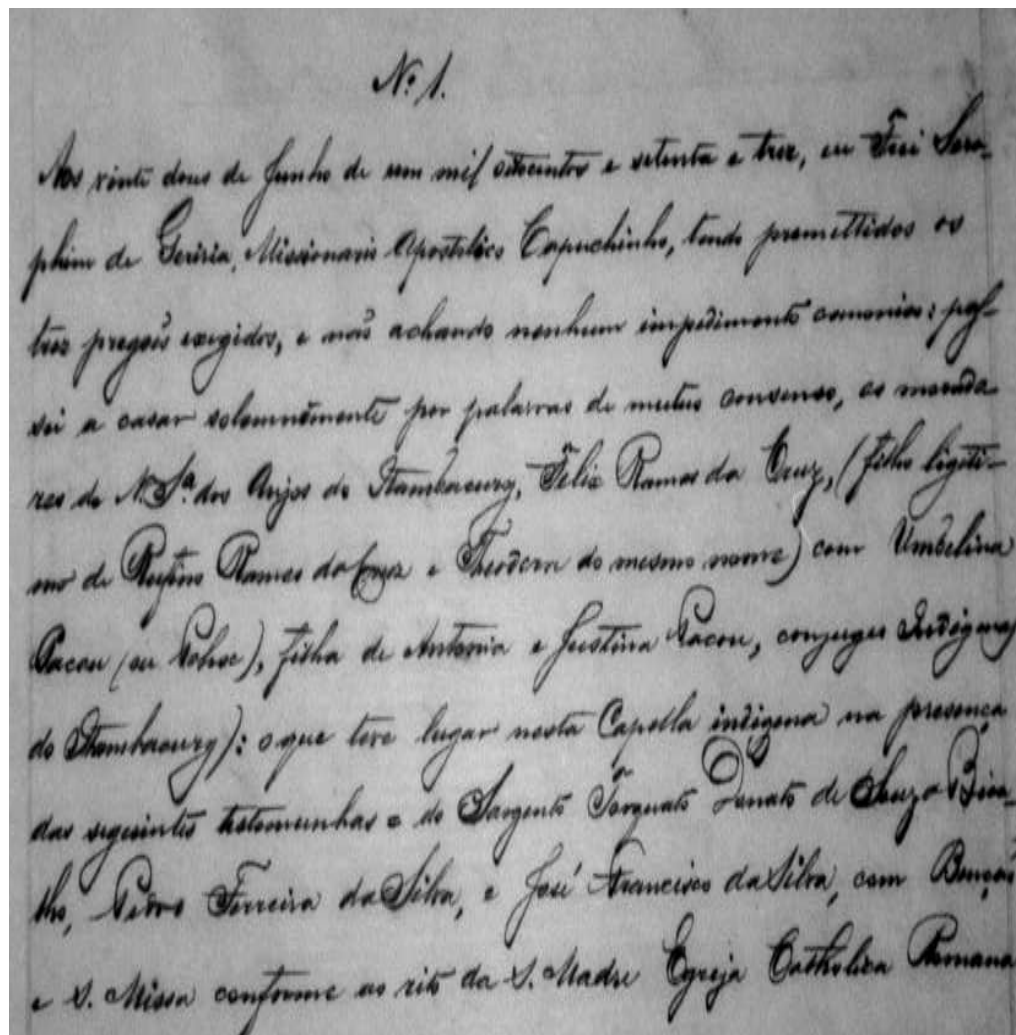 Nº 1.
Aos vinte dous de Junho de um mil oitocentos e setenta e trez, eu Frei Sera-
phim de Gorizia, Missionario Apostolico Capuchinho, tendo premettidos os
trez pregoẽs exigidos, e naõ achando nenhum impedimento canonico: pas-
sei a casar solemnemente por palavras de mutuo consenso, os morado-
res do N. Sª. dos Anjos do Itambacury, Felix Ramos da Cruz, (filho ligiti-
mo de Rufino Ramos da Cruz e do mesmo nome) com Umbelina
Pacou (ou Pohoc), filha de Antonio e Justina Pacou, conjuges Indigenas
do Itambacury): o que teve lugar nesta Capella indigena na presença
das seguintes testemunhas e do Sargento Torquato Donato de Souza Bica-
lho, Pedro Ferreira da Silva, e José Francisco da Silva, com Bençaõ
e S. Missa conforme ao rito da S. Madre Egreja Catholica Romana